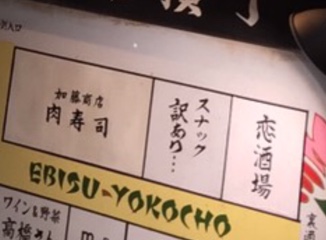 加藤商店
肉寿司
スナック
訳あり…
恋酒場
EBISU-YOKOCHO
ワイン&野菜
高橋さん